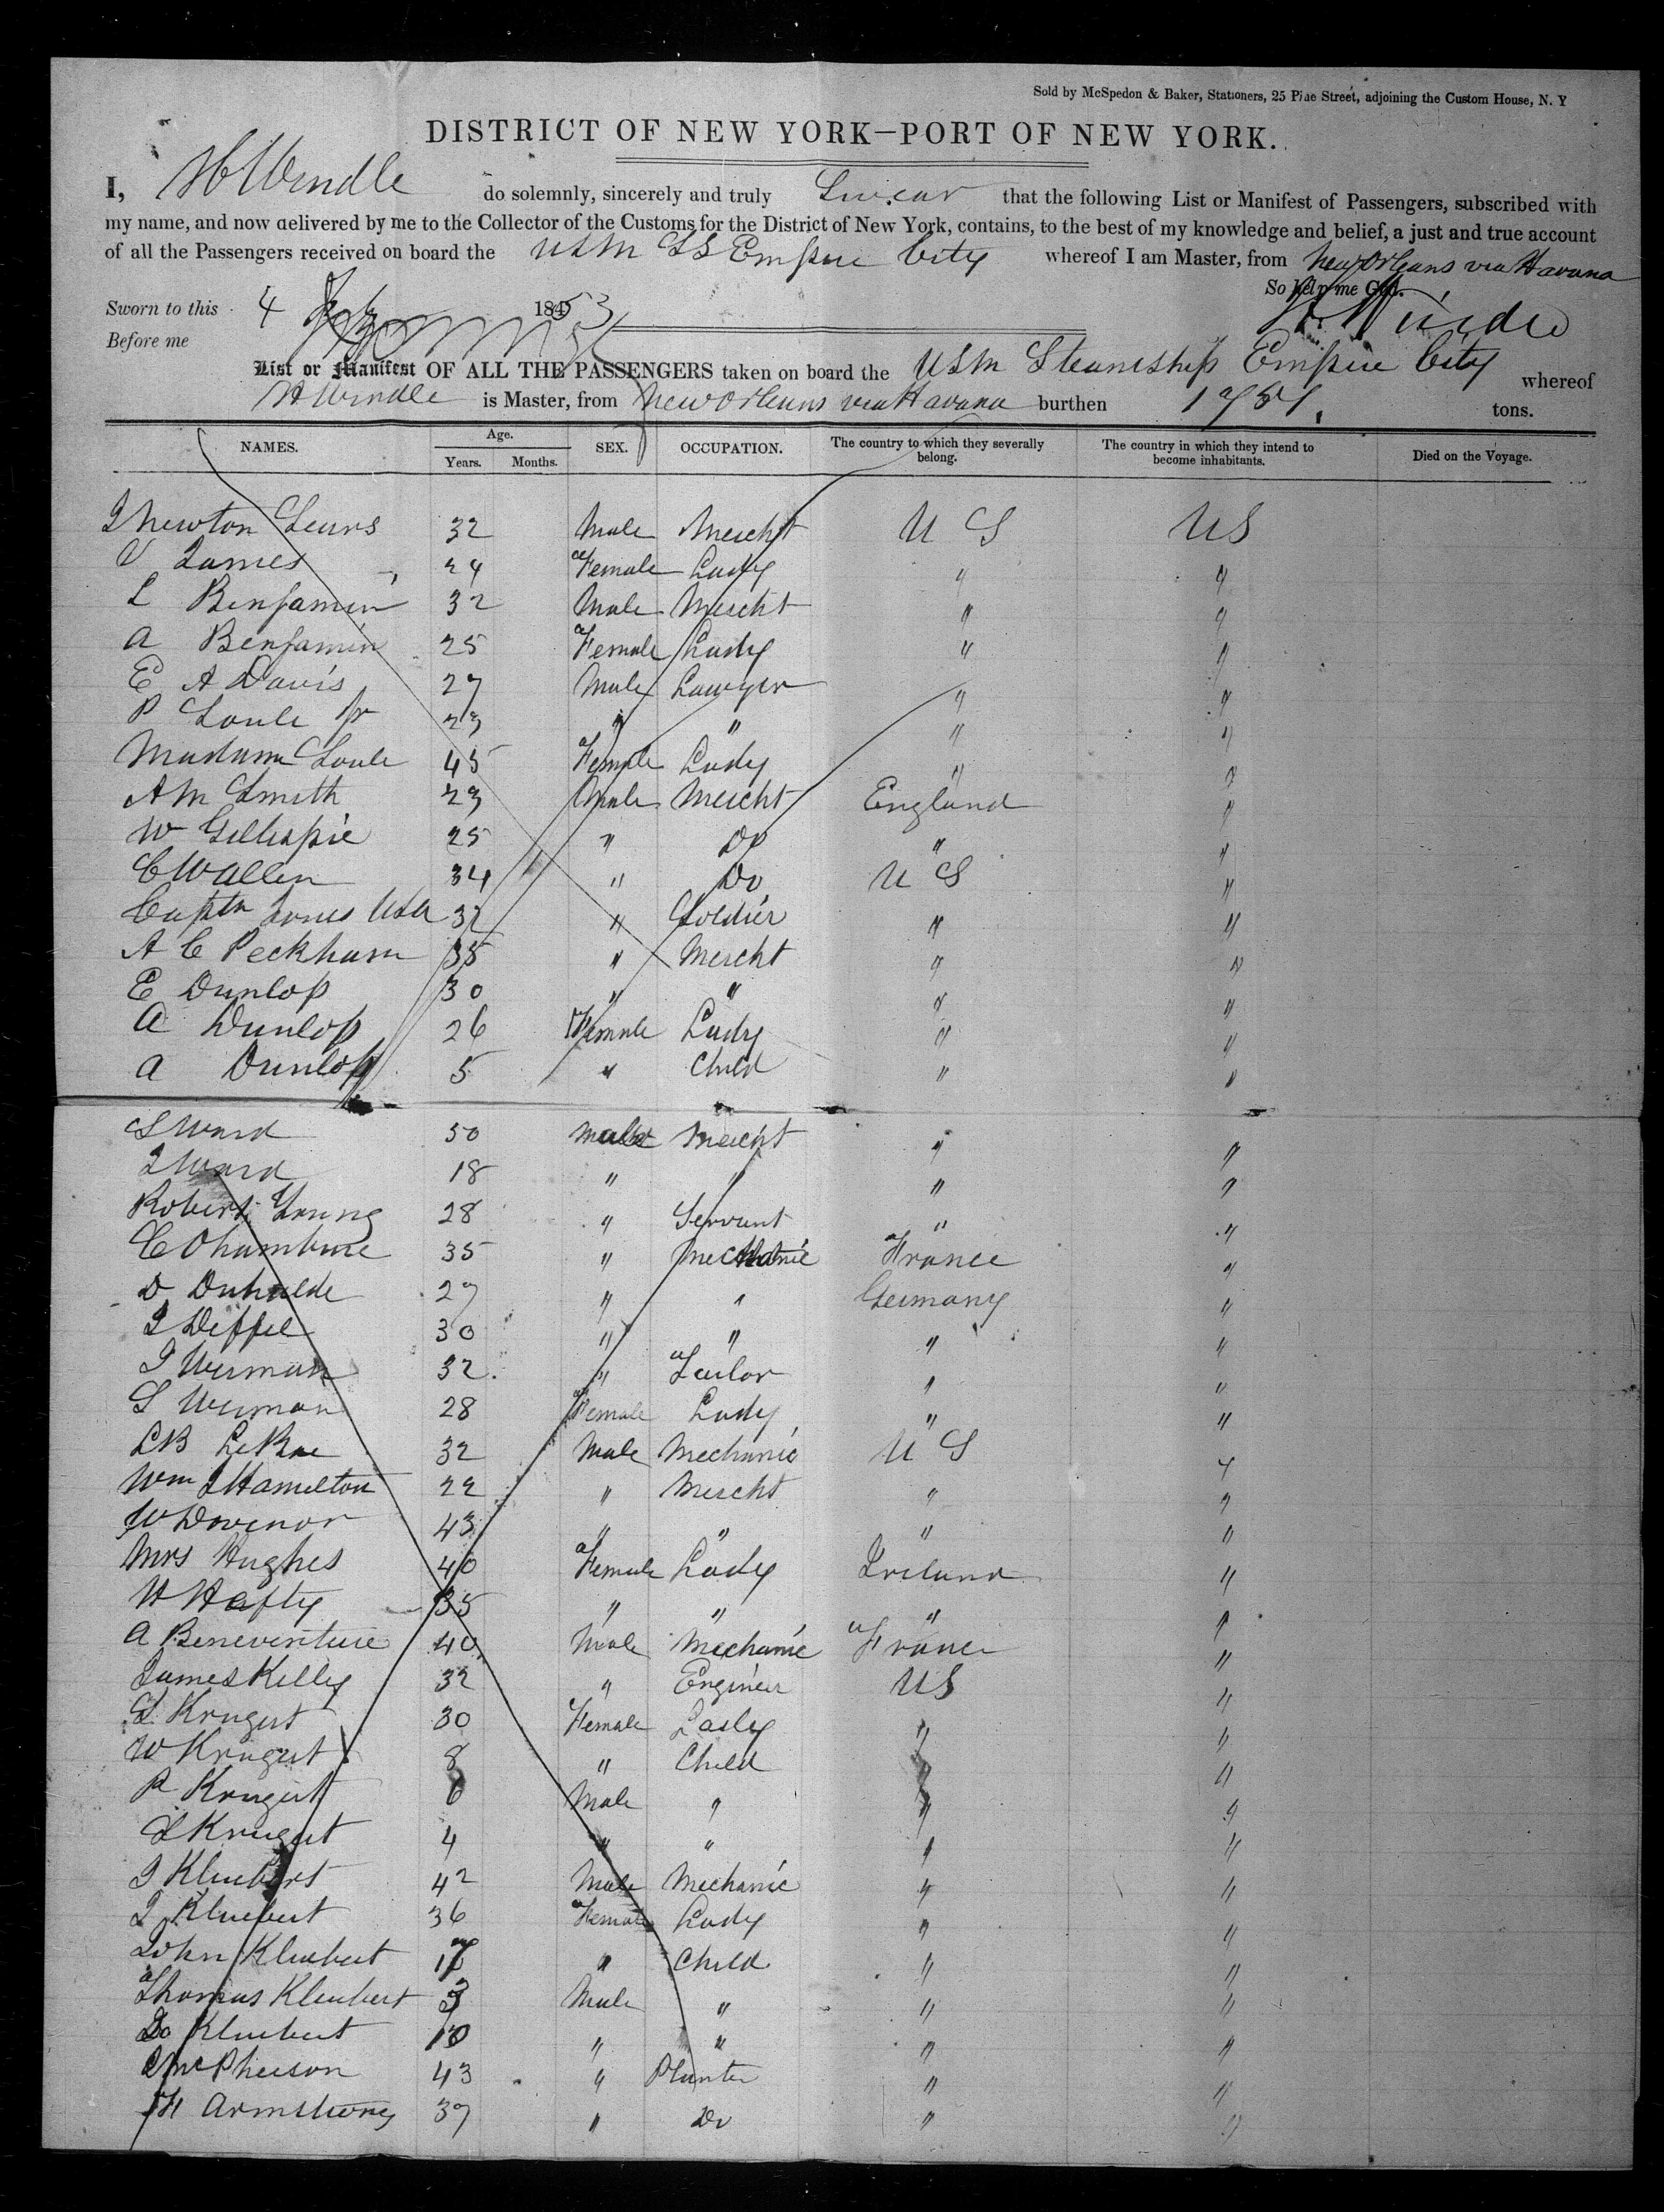 Sold by McSpedon & Baker, Stationers, 25 Pine Street, adjoining the Custom House, N. Y
DISTRICT OF NEW YORK—PORT OF NEW YORK.
I, H Windle do solemnly, sincerely and truly Swear that the following List or Manifest of Passengers, subscribed with
my name, and now delivered by me to the Collector of the Customs for the District of New York, contains, to the best of my knowledge and belief, a just and true account
of all the Passengers received on board the USM SS Empire City whereof I am Master, from New Orleans via Havana
So help me God.
Sworn to this 4 1853
H Windle
Before me
List or Manifest OF ALL THE PASSENGERS taken on board the USM Steamship Empire City whereof
H Windle is Master, from New Orleans via Havana burthen 1751 tons.
NAMES. Age. Years. Months. SEX. OCCUPATION. The country to which they severally belong. The country in which they intend to become inhabitants. Died on the Voyage.
Newton 32 Male Mercht U S US
James 24 Female Lady " "
L Benjamin 32 Male Mercht " "
A Benjamin 25 Female Lady " "
E A Davis 27 Male Lawyer " "
P Soule Jr 23 " " " "
Madam Soule 45 Female Lady " "
A M Smith 23 Male Mercht England "
W Gillespie 25 " Do " "
C Wallen 34 " Do U S "
Captn Jones USA 32 " Soldier " "
A C Peckham 35 " Mercht " "
E Dunlop 30 " " " "
A Dunlop 26 Female Lady " "
A Dunlop 5 " Child " "
S Ward 50 Male Mercht " "
J Ward 18 " " " "
Robert Young 28 " Servant " "
C 35 " Mechanic France "
D Duhalde 27 " " Germany "
J Diffel 30 " " " "
J Werman 32 " Tailor " "
S Werman 28 Female Lady " "
L B 32 Male Mechanic U S "
Wm J Hamilton 22 " Mercht " "
W Dovenor 43 " " " "
Mrs Hughes 40 Female Lady Ireland "
H Hafty 35 " " " "
A Beneventure 40 Male Mechanic France "
James Kelley 32 " Engineer US "
L Krugert 30 Female Lady " "
W Krugert 8 " Child " "
P Krugert 6 Male " " "
L Krugert 4 " " " "
J Kluebert 42 Male Mechanic " "
J Kluebert 36 Female Lady " "
John Kluebert " Child " "
Thomas Kluebert 3 Male " " "
Jo Kluebert 10 " " " "
C McPheeson 43 " Planter " "
H Armstrong 37 " Do " "